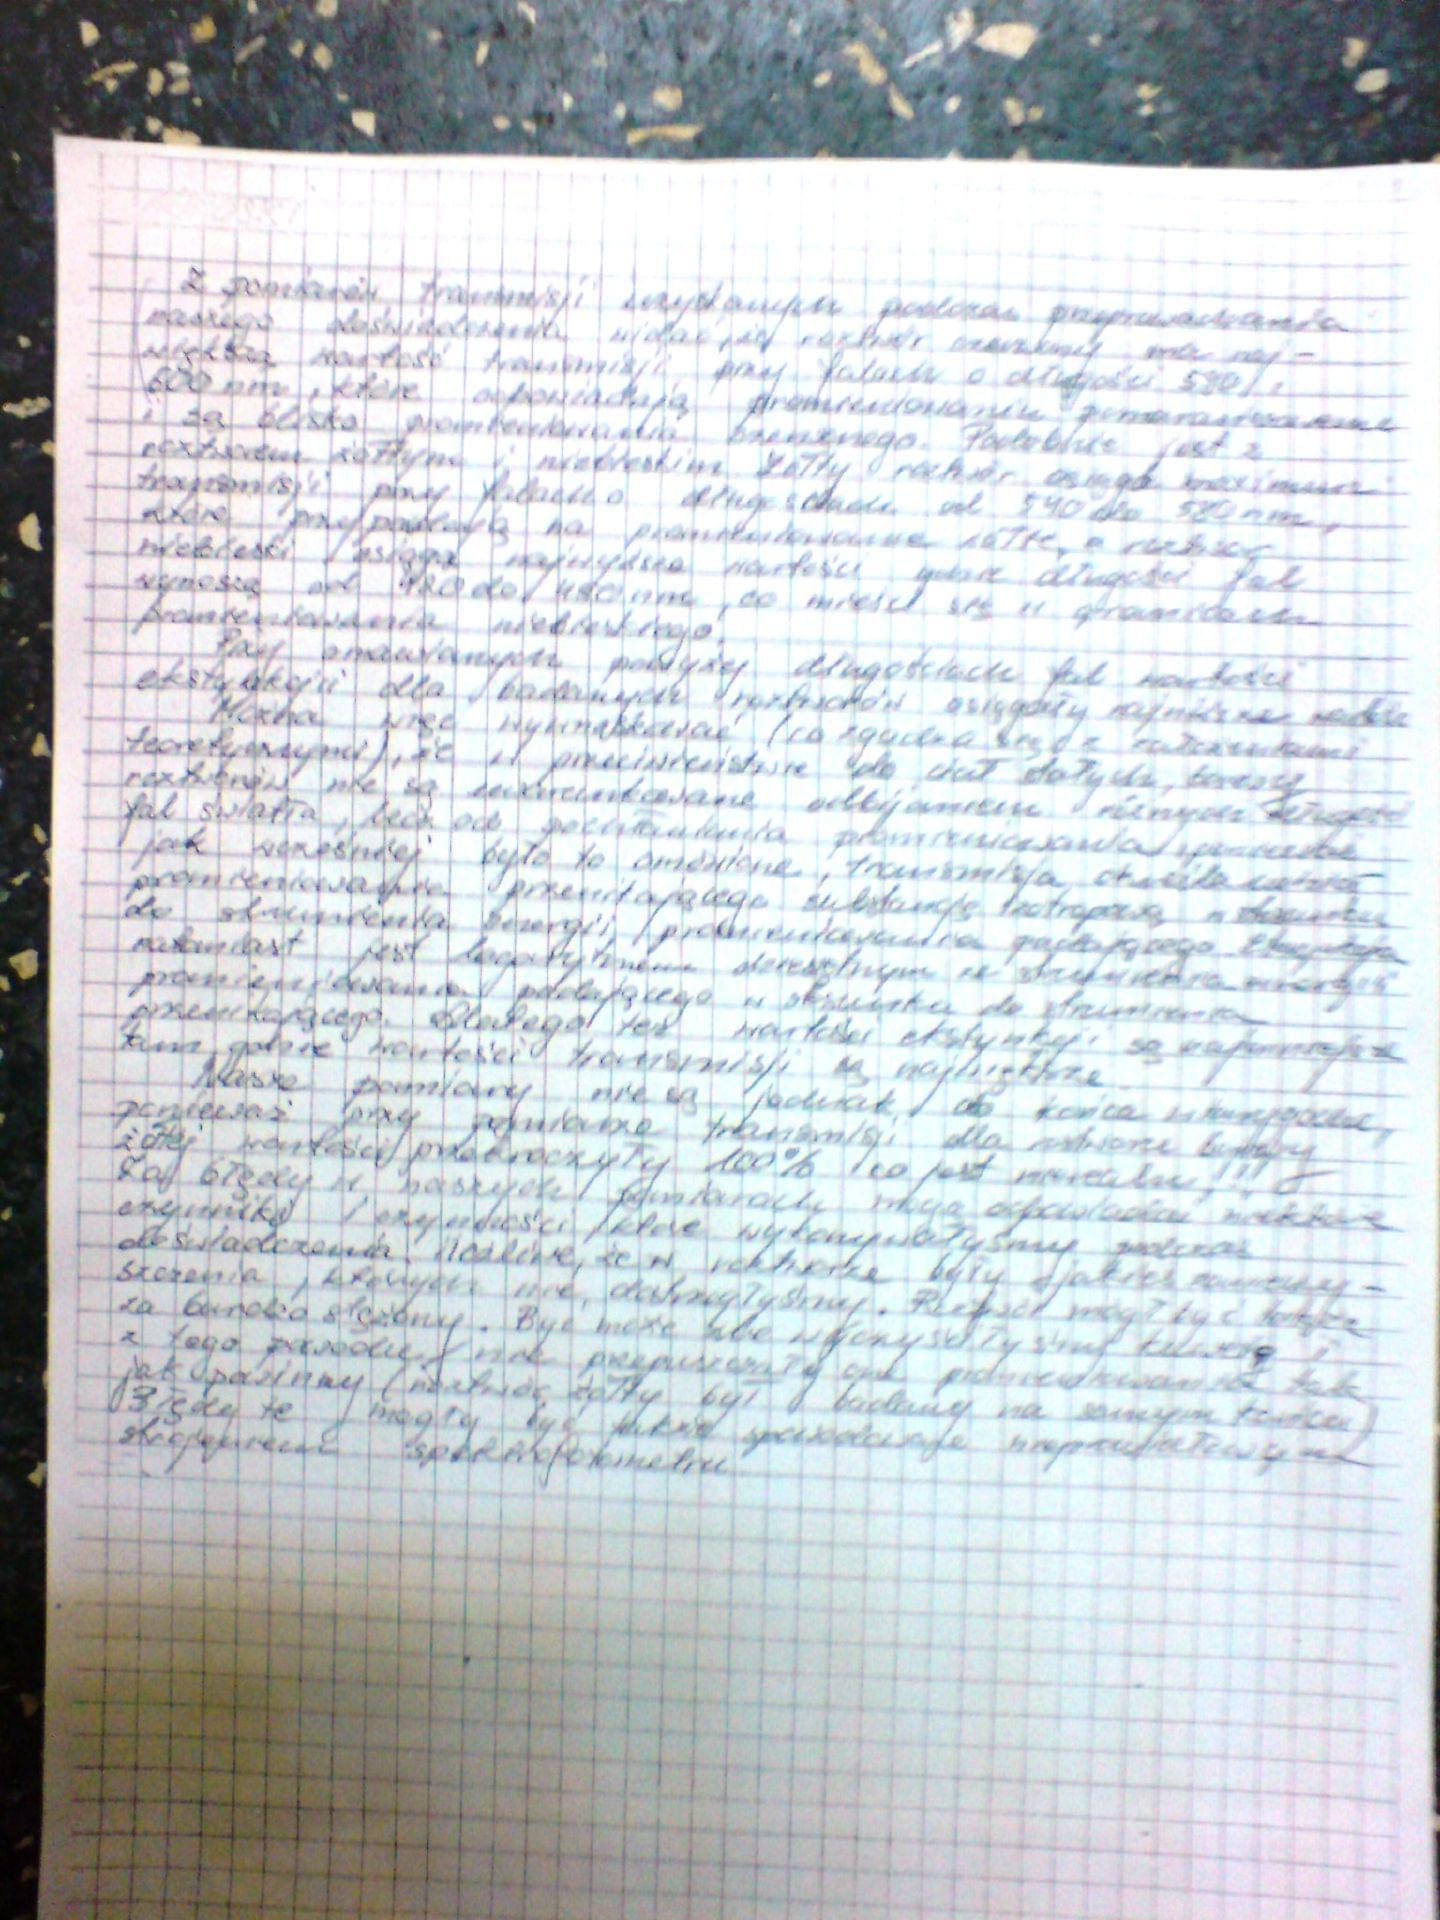 Z pomiarów transmisji uzyskanych podczas przeprowadzania
naszego doświadczenia widać, że roztwór czerwony ma naj-
większą wartość transmisji przy falach o długości 580 i
600 nm, które odpowiadają promieniowaniu pomarańczowemu
i są blisko promieniowania czerwonego. Podobnie jest z
roztworem żółtym i niebieskim. Żółty roztwór osiąga maximum
transmisji przy falach o długościach od 540 do 580 nm,
które przypadają na promieniowanie żółte, a roztwór
niebieski osiąga najwyższe wartości gdzie długości fal
wynoszą od 420 do 480 nm, co mieści się w granicach
promieniowania niebieskiego.
Przy omawianych powyżej długościach fal wartości
ekstynkcji dla badanych roztworów osiągały najniższe
Można więc wywnioskować (co zgadza się z założeniami
teoretycznymi), że w przeciwieństwie do ciał stałych, barwy
roztworów nie są uwarunkowane odbijaniem różnych długości
fal światła, lecz od pochłaniania promieniowania, ponieważ
jak wcześniej było to omówione, transmisja określa
promieniowania przenikającego substancję izotropową w stosunku
do strumienia energii promieniowania padającego. Ekstynkcja
natomiast jest logarytmem dziesiętnym ze strumienia energii
promieniowania padającego w stosunku do strumienia
przenikającego. Dlatego też wartości ekstynkcji są najmniejsze
tam gdzie wartości transmisji są największe
Nasze pomiary nie są jednak do końca
ponieważ przy pomiarze transmisji dla roztworu barwy
żółtej wartości przekroczyły 100% co jest nierealne!!!
Za błędy w naszych pomiarach mogą odpowiadać niektóre
czynniki i czynności, które wykonywałyśmy podczas
doświadczenia. że w roztworze były jakieś zanieczy-
szczenia, których nie dostrzegłyśmy. Roztwór mógł być także
za bardzo stężony. Być może źle wyczyściłyśmy kuwetę i
z tego powodu nie przepuszczały one promieniowania tak
jak powinny (roztwór żółty był badany na samym końcu)
Błędy te mogły być także spowodowane nieprawidłowym
strojeniem spektrofotometru